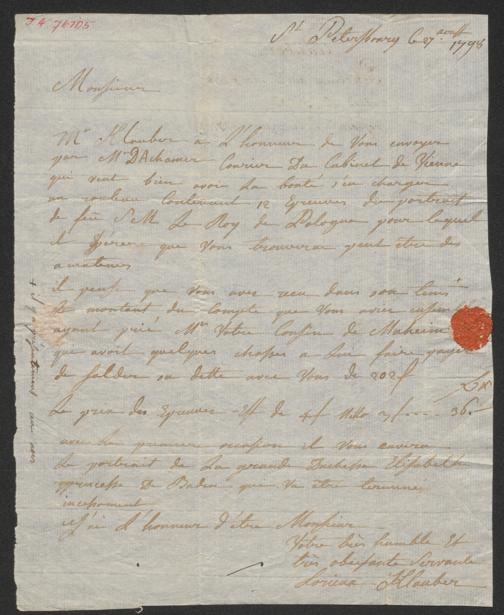 St Petersbourg le 27 août 1798
Monsieur
Mr Klauber a L'honneur de Vous envoyer
par Mr D'Achamer Courier Du Cabinet de Vienne
qui veut bien avoir La bonté s'en charger
un rouleau Contenant 12 Epreuves du portrait
de feu S M Le Roy de Pologne pour laquel
il espere que Vous trouverai peut etre des
amateures
il peut que Vous aves recu dans son tems
Le montant du Compte que Vous aves
ayant prié Mr Votre Cousin de Maheim
que avoit quelques choses a Lui faire payer
de solder sa dette avec Vous de 202 f
Le prix des Epreuves est de 4 f 3 f 36
avec La premiere occasion il Vous envera
Le portrait de La grande Duchesse Elisabeth
princesse D Baden, que Va être terminé
incessament
J'ai L'honneur d'être Monsieur
Votre très humble Et
très obeisante Servante
Klauber